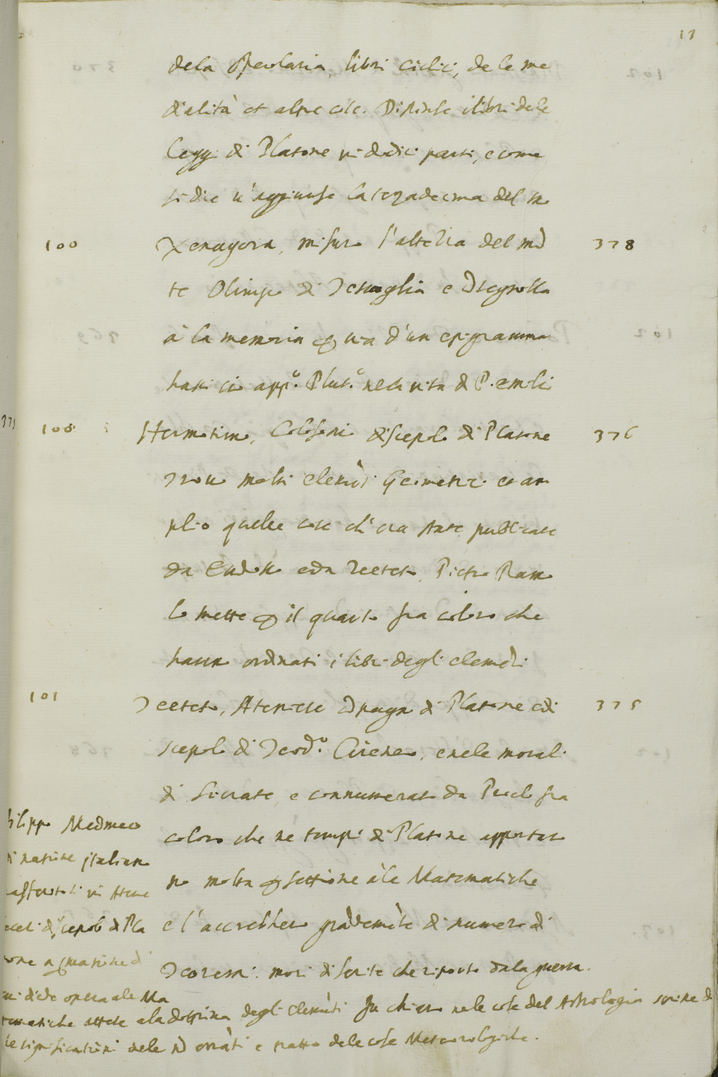 13
dela specolaria, libri ciclici, de le me
dialità et altre cose. Distinse i libri dele
leggi di Platone in dodici parti, e come
si dice v'aggiunse la terzadecima del suo
100 Xenagora, misurò l'altezza del mō 378
te Olimpo di Tesaglia e
à la memoria d'un epigramma
hassi ciò app.º Plut.º nela vita di P. emili
100 Hermotimo, Colofonio discepolo di Platone 376
trovò molti elemēti Geometrici et am
pliò quelle cose ch'era state publicate
da Eudosso e da Teeteto. Pietro Ramo
lo mette il quarto fra coloro che
hanno ordinati i libri degli elemēti
101 Teeteto, Ateniese di Platone e di 375
scepolo di Teod.º Cireneo, e nele morali
di Socrate, e connumerato da Proclo fra
coloro che ne tempi di Platone apportar
no molta perfettione à le Matematiche
e l'accrebbero grādemēte di numero di
Teoremi. morì di ferite che riportò dala guerra.
Filippo Medmeo
di natione italiano
in Atene
discepolo di Pla
tone
diede opera ale Ma
tematiche attese ala dottrina degli elemēti Fu chiaro nele cose del Astrologia scrisse d
le significationi dele e trattò dele cose Meteorologiche.